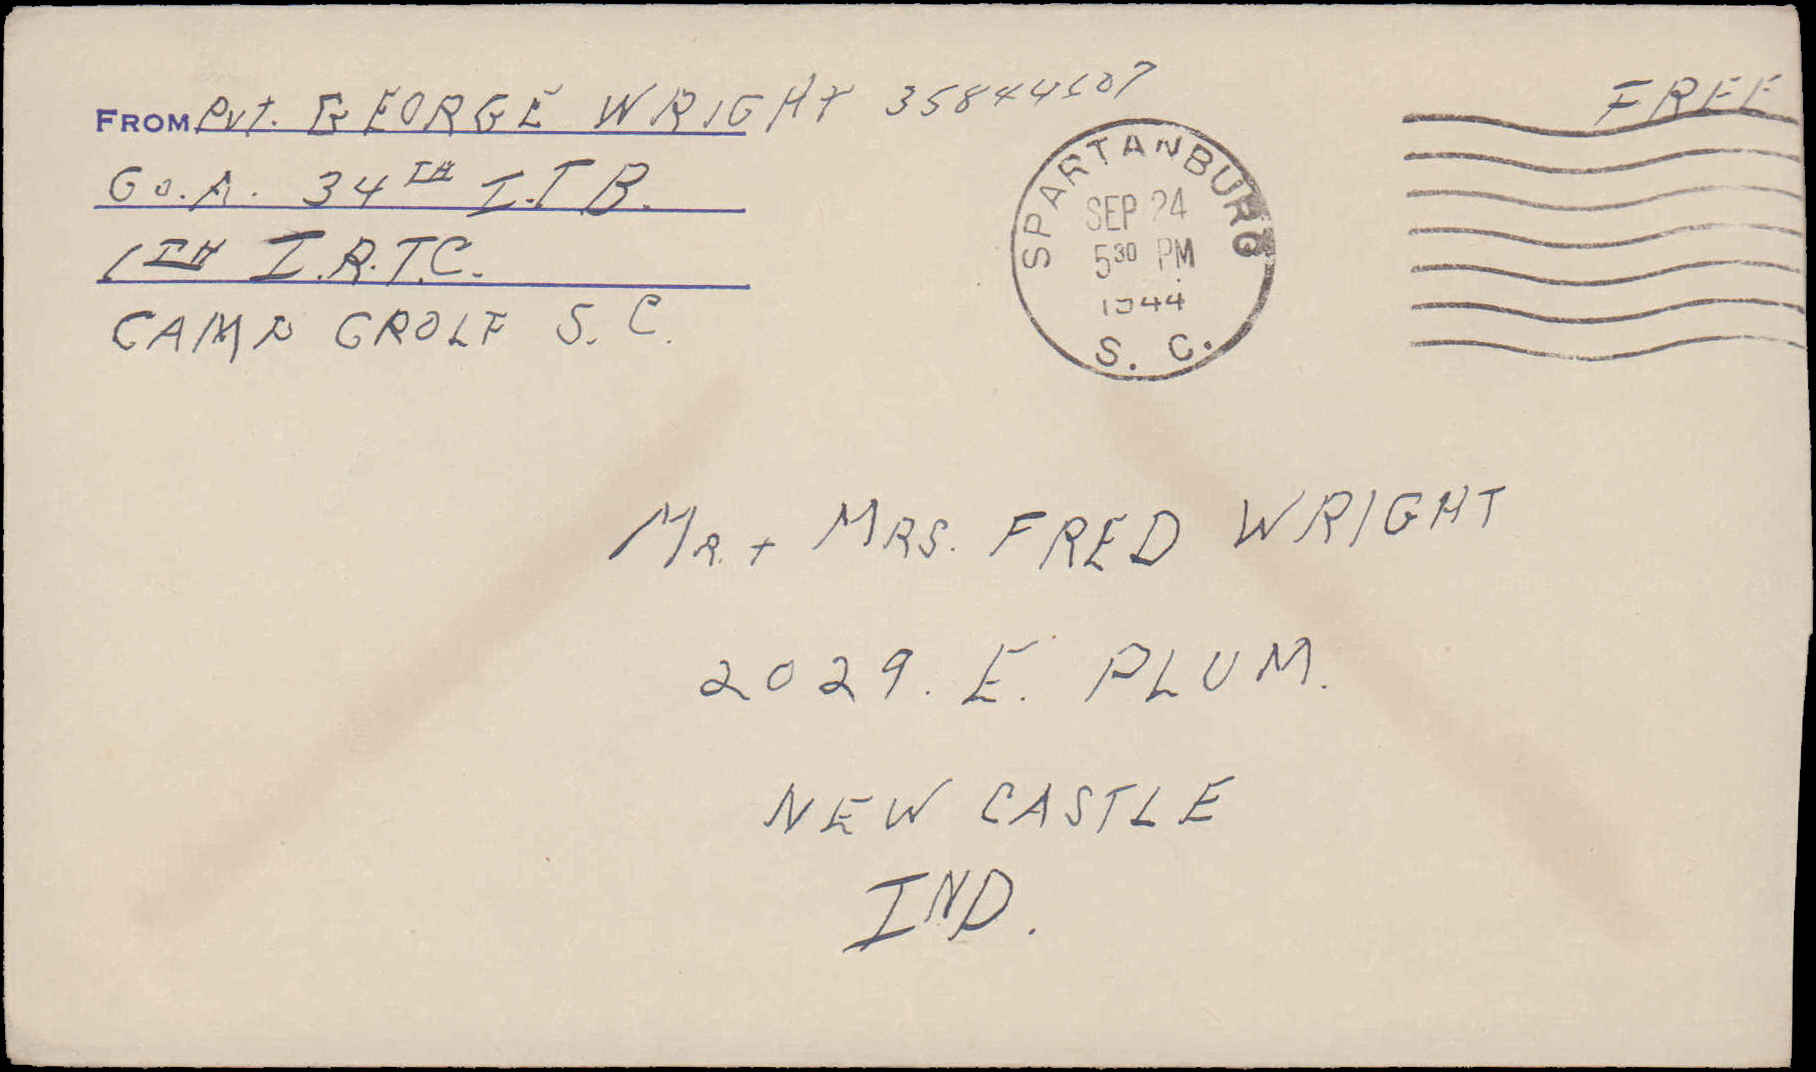 FROM Pvt. GEORGE WRIGHT 35844607
Co. A. 34TH I.T B.
1TH I.R.T.C.
CAMP CROLF S. C.
SPARTANBURG
SEP 24
5 30 PM
1944
S. C.
FREE
MR. + MRS. FRED WRIGHT
2029. E. PLUM.
NEW CASTLE
IND.